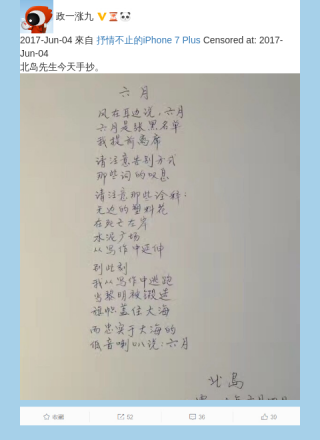 政一涨九
2017-Jun-04 來自 抒情不止的iPhone 7 Plus Censored at: 2017-
Jun-04
北岛先生今天手抄。
六月
风在耳边说，六月
六月是张黑名单
我提前离席
请注意告别方式
那些词的叹息
请注意那些诠释：
无边的塑料花
在死亡左岸
水泥广场
从写作中延伸
到此刻
我从写作中逃跑
当黎明被锻造
旗帜盖住大海
而忠实于大海的
低音喇叭说：六月
北岛
收藏
52
36
39